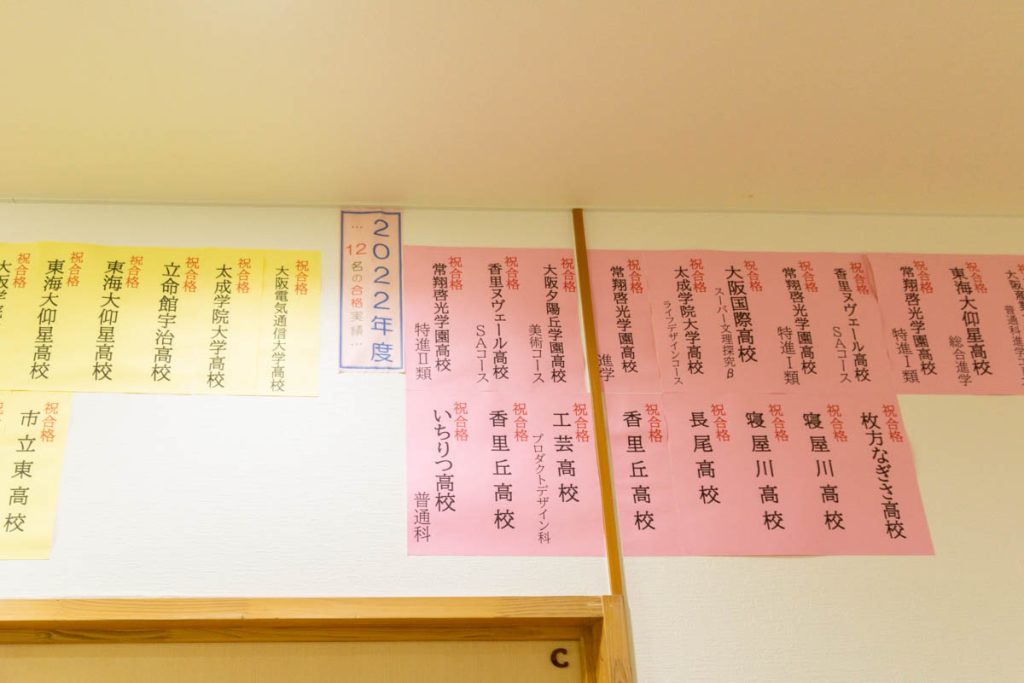 祝合格
東海大仰星高校
総合進学
祝合格
常翔啓光学園高校
特進Ⅰ類
祝合格
香里ヌヴェール高校
SAコース
祝合格
常翔啓光学園高校
特進Ⅰ類
祝合格
大阪国際高校
スーパー文理探究β
祝合格
太成学院大学高校
ライフデザインコース
祝合格
常翔啓光学園高校
進学
祝合格
大阪夕陽丘学園高校
美術コース
祝合格
香里ヌヴェール高校
SAコース
祝合格
常翔啓光学園高校
特進Ⅱ類
祝合格
枚方なぎさ高校
祝合格
寝屋川高校
祝合格
寝屋川高校
祝合格
長尾高校
祝合格
香里丘高校
祝合格
工芸高校
プロダクトデザイン科
祝合格
香里丘高校
祝合格
いちりつ高校
普通科
2022年度
…12名の合格実績…
祝合格
大阪電気通信大学高校
祝合格
太成学院大学高校
祝合格
立命館宇治高校
祝合格
東海大仰星高校
祝合格
東海大仰星高校
祝合格
祝合格
市立東高校
C